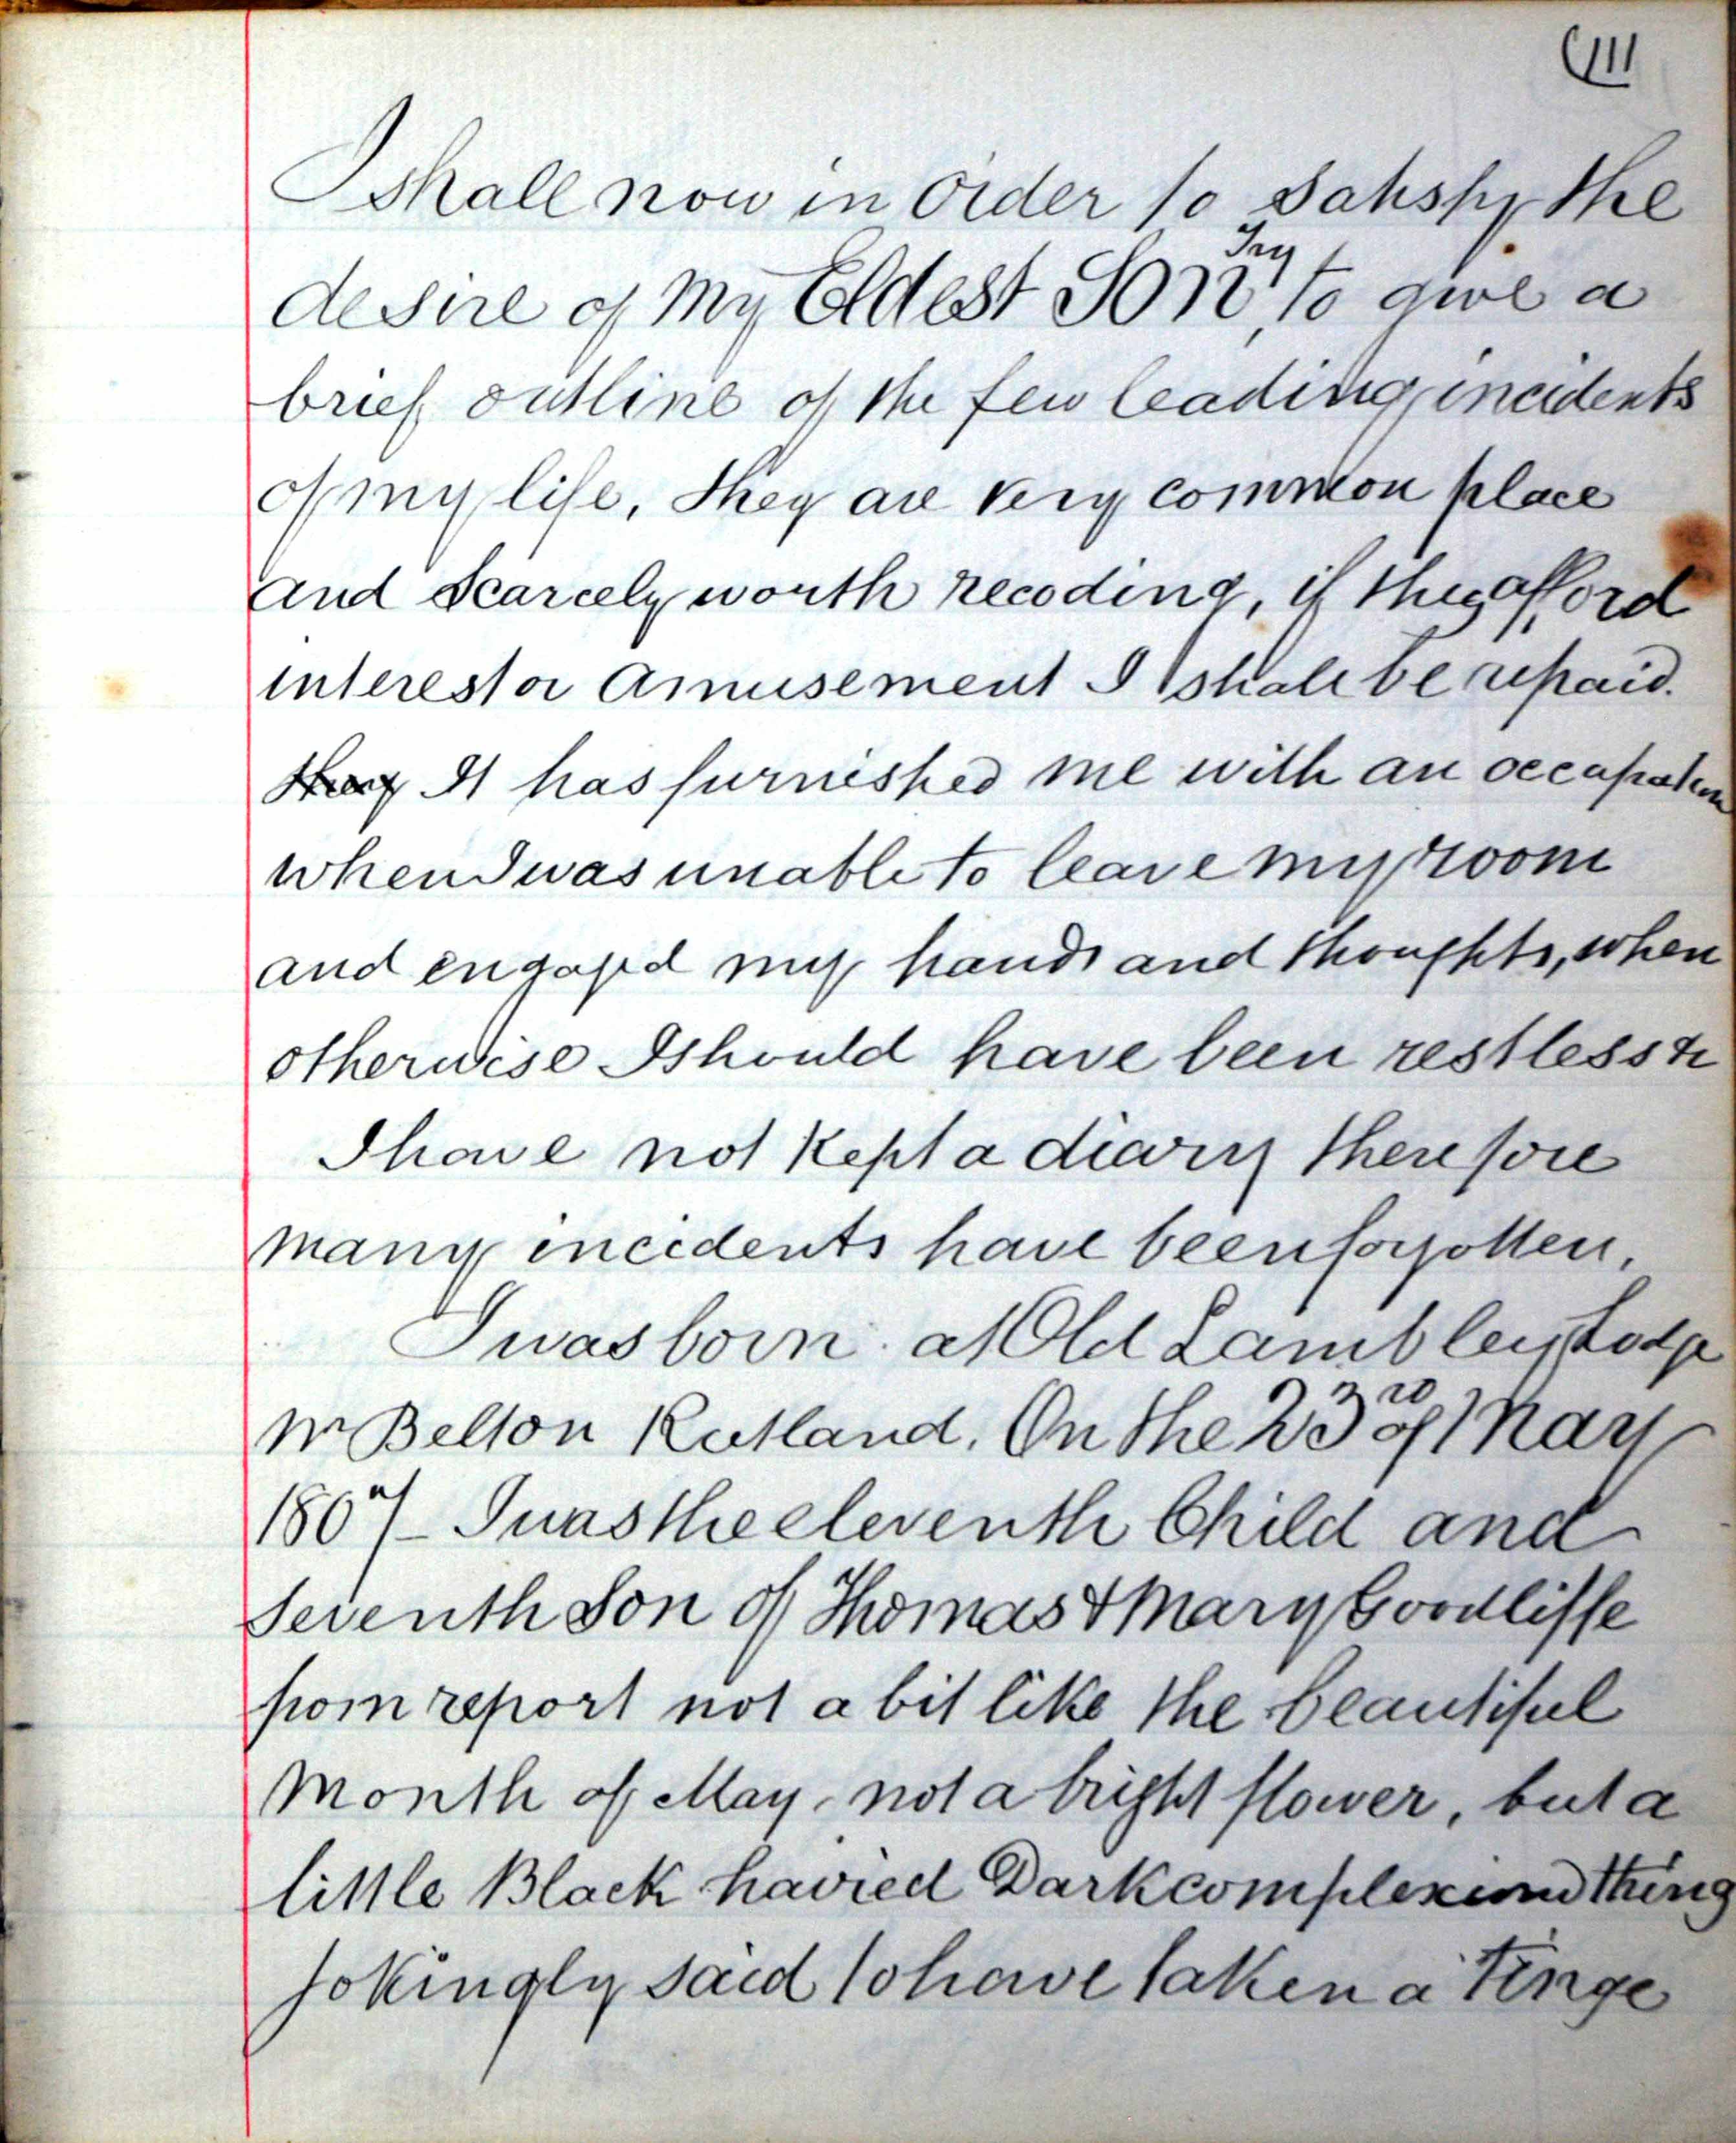 (111
I shall now in order to satisfy the
desire of my Eldest Son, Try to give a
brief outline of the few leading incidents
of my life, they are very common place
and scarcely worth recoding, if they afford
interest or amusement I shall be repaid.
They It has furnished me with an occupation
when I was unable to leave my room
and engaged my hands and thoughts, when
otherwise I should have been restless &c
I have not kept a diary therefore
many incidents have been forgotten,
I was born at Old Lambley Lodge
Nr Belton Rutland. On the 23rd of May
1807 - I was the eleventh Child and
seventh Son of Thomas & Mary Goodliffe
from report not a bit like the beautiful
Month of May, not a bright flower, but a
little Black havied Dark complexiond thing
jokingly said to have taken a tinge